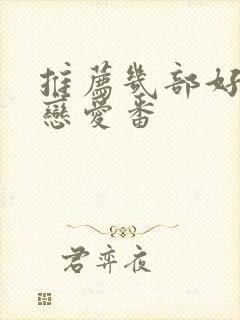 推薦幾部好
戀愛番
君弈夜